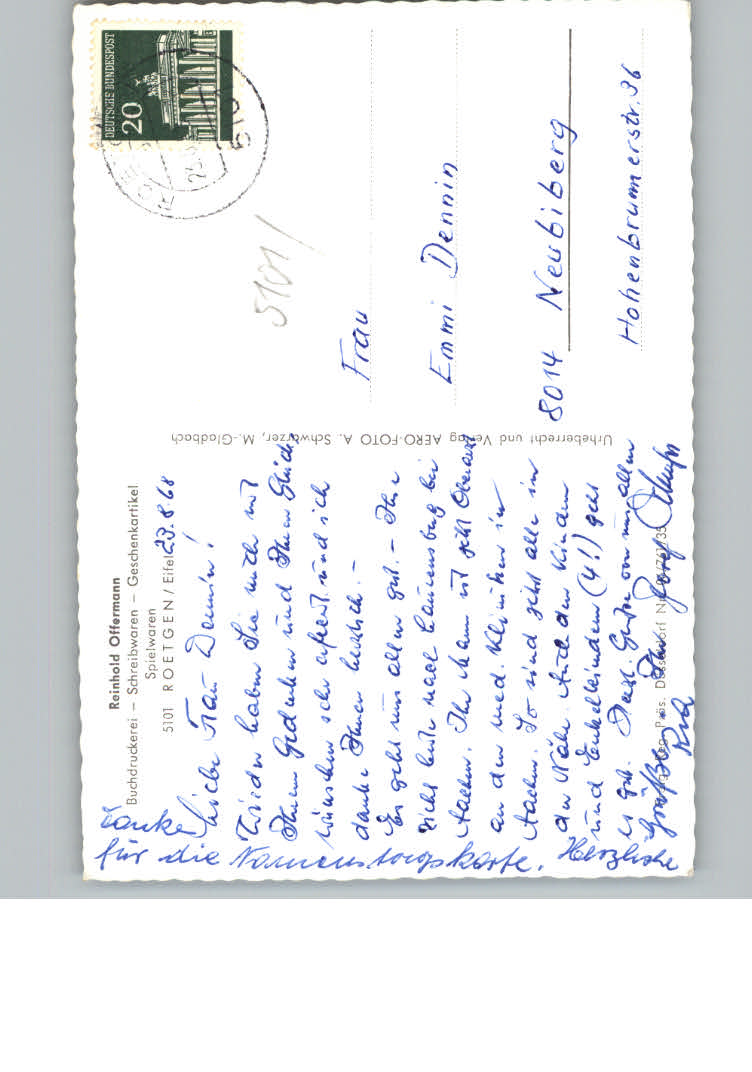 Reinhold Offermann
Buchdruckerei – Schreibwaren – Geschenkartikel
Spielwaren
5101 ROETGEN / Eifel 23.8.68
Liebe Frau Dennin!
Wieder haben Sie mich mit
Ihrem Gedenken und Ihren Glück-
wünschen sehr erfreut und ich
danke Ihnen herzlich. –
Es geht uns allen gut. – Ihre
zieht heute nach Laurensberg bei
Aachen. Ihr Mann ist jetzt Oberarzt
an der med. Kliniken in
Aachen. So sind jetzt alle in
der Nähe. Auch den Kindern
und Enkelkindern (4!) geht
es gut. Herzl. Grüße von uns allen
Ihr Josef
Danke
für die Namenstagskarte. Herzliche
Grüße
Urheberrecht und Verlag AERO-FOTO A. Schwarzer, M.-Gladbach
Reg. Präs. Düsseldorf Nr.
DEUTSCHE BUNDESPOST
20
510
5101
Frau
Emmi Dennin
8014 Neubiberg
Hohenbrunnerstr. 36